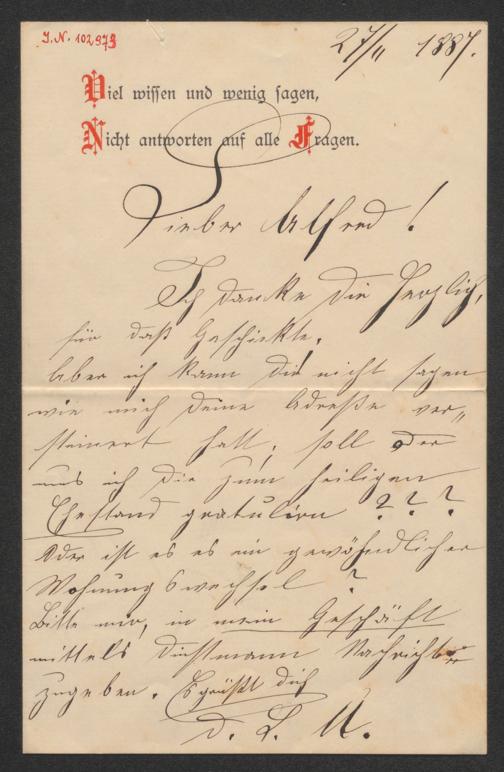 J. N. 102.973
27/11 1887.
Viel wissen und wenig sagen,
Nicht antworten auf alle Fragen.
Lieber Alfred!
Ich danke Dir herzlich,
für daß Geschickte.
Aber ich kann dir nicht sagen
wie mich deine Adreße ver„
steinert hatt, soll oder
muß ich Dir zum heiligen
Ehestand gratuliren ???
Oder ist es es ein gewöhndlicher
Wohnungswechsel ?
Bitte mir, in mein Geschäft
mittels Dinstmann Nachricht
zugeben. Es grüßt dich
d. L. U.